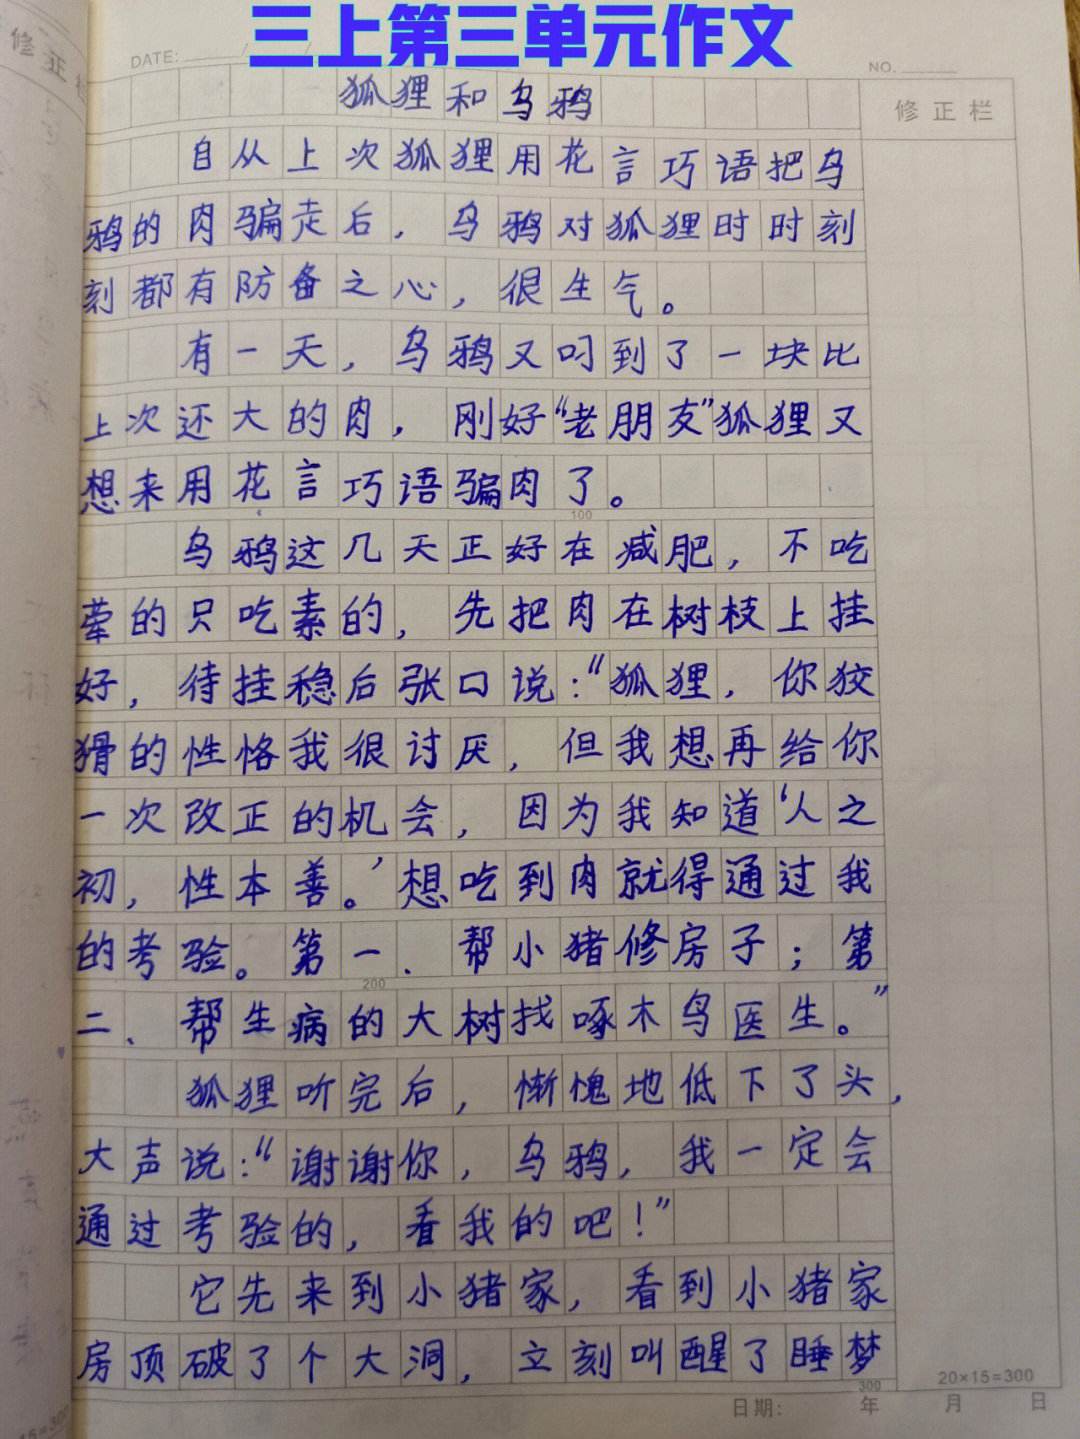 三上第三单元作文
修正栏
DATE:
NO.
修正栏
狐狸和乌鸦
自从上次狐狸用花言巧语把乌
鸦的肉骗走后，乌鸦对狐狸时时刻
刻都有防备之心，很生气。
有一天，乌鸦又叼到了一块比
上次还大的肉，刚好“老朋友”狐狸又
想来用花言巧语骗肉了。
100
乌鸦这几天正好在减肥，不吃
荤的只吃素的，先把肉在树枝上挂
好，待挂稳后张口说：“狐狸，你狡
猾的性格我很讨厌，但我想再给你
一次改正的机会，因为我知道‘人之
初，性本善。’想吃到肉就得通过我
的考验。第一、帮小猪修房子；第
200
二、帮生病的大树找啄木鸟医生。”
狐狸听完后，惭愧地低下了头，
大声说：“谢谢你，乌鸦，我一定会
通过考验的，看我的吧！”
它先来到小猪家，看到小猪家
房顶破了个大洞，立刻叫醒了睡梦
300
20×15=300
日期： 年 月 日